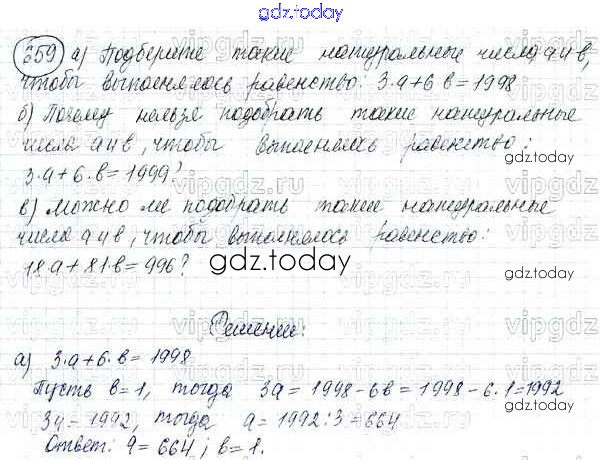 gdz.today
659 а) Подберите такие натуральные числа а и в,
чтобы выполнялось равенство: 3·а+6·в=1998
б) Почему нельзя подобрать такие натуральные
числа а и в, чтобы выполнялось равенство:
gdz.today
3·а+6·в=1999?
в) Можно ли подобрать такие натуральные
числа а и в, чтобы выполнялось равенство:
gdz.today
18·а+81·в=996?
gdz.today
Решение:
vipgdz.ru
а) 3·а+6·в=1998
Пусть в=1, тогда 3а=1998-6в=1998-6·1=1992
3а=1992, тогда а=1992:3=664
gdz.today
Ответ: а=664; в=1.